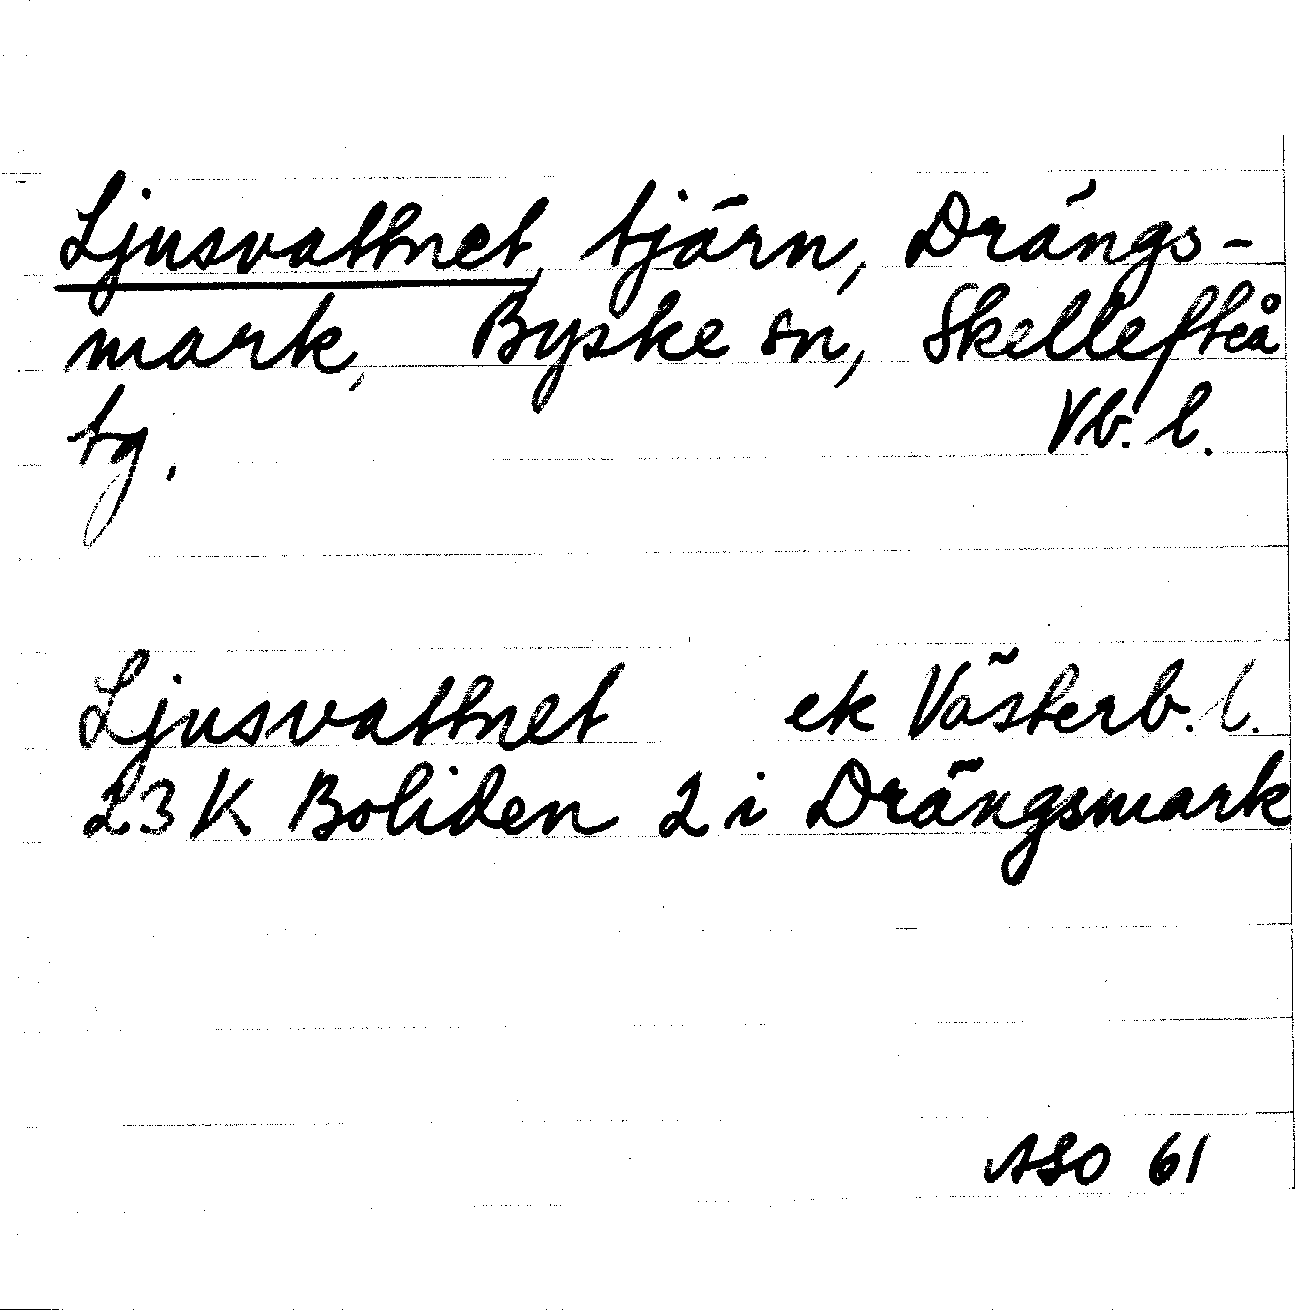 Ljusvattnet, tjärn, Drängs-
mark, Byske sn, Skellefteå
tg. Vb. l.
Ljusvattnet ek Västerb. l.
23 K Boliden 2 i Drängsmark
ASO 61